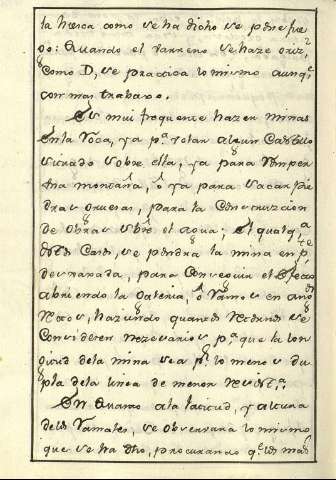 la Mosca como se ha dicho se pone fue
go: Quando el varreno se haze oriz.
como D, se practica lo mismo aunq.e
con mas travajo.
Es mui frequente hazer minas
En la Roca, ya p.a volar algun Castillo
situado sobre ella, ya para romper
una montaña, ô ya para sacar pie
dras gruesas, para la Construccion
de Obras sobre el agua; En qualq.
destos Casos, se pondra la mina en
para Conseguir el efecto
abriendo la Galeria, ô Ramos en ang.
Rectos, haziendo quantos se
Consideren nezesarios p.a que la lon
gitud dela mina sea p.r lo menos du
pla dela linea de menor Resist.a
En Quanto ala latitud, y altura
delos Ramales, se observara lo mismo
que se ha dho, procurando q.e los mas